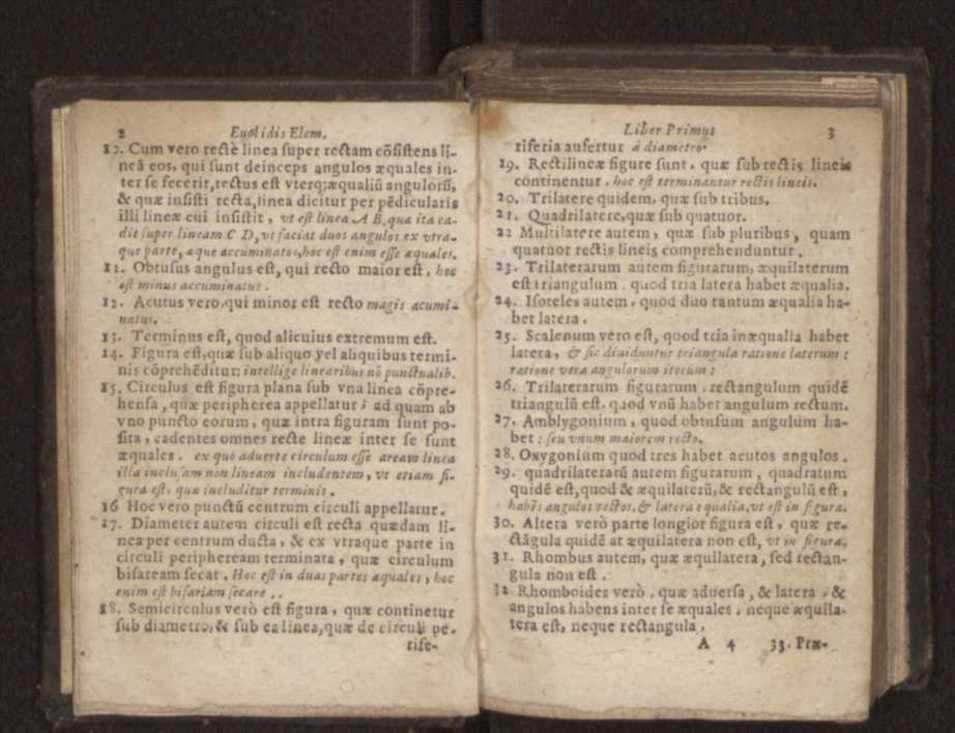 2 Euclidis Elem.
10. Cum vero rectè linea super rectam cõsistens li-
neã eos, qui sunt deinceps angulos æquales in-
ter se fecerit, rectus est vterq; æqualiũ angulorũ,
& quæ insisti recta, linea dicitur per pẽdicularis
illi lineæ cui insistit, vt est linea A B, quæ ita ca-
dit super lineam C D, vt faciat duos angulos ex vtra-
que parte, æque accuminatos, hoc est enim esse æquales.
11. Obtusus angulus est, qui recto maior est, hoc
est minus accuminatus.
12. Acutus vero, qui minor est recto magis acumi-
natus.
13. Terminus est, quod alicuius extremum est.
14. Figura est, quæ sub aliquo vel aliquibus termi-
nis cõprehẽditur: intellige linearibus nõ punctualib.
15. Circulus est figura plana sub vna linea cõpre-
hensa, quæ peripherea appellatur; ad quam ab
vno puncto eorum, quæ intra figuram sunt po-
sita, cadentes omnes recte lineæ inter se sunt
æquales. ex quo aduerte circulum esse aream linea
illa inclusam non lineam includentem, vt etiam fi-
gura est, quæ includitur terminis.
16 Hoc vero punctũ centrum circuli appellatur.
17. Diameter autem circuli est recta quædam li-
nea per centrum ducta, & ex vtraque parte in
circuli peripheream terminata, quæ circulum
bifaream secat. Hoc est in duas partes æquales, hoc
enim est bifariam secare..
18. Semicirculus verò est figura, quæ continetur
sub diametro, & sub ea linea, quæ de circuli pe-
rife-
Liber Primus 3
riferia aufertur à diametro.
19. Rectilineæ figure sunt, quæ sub rectis lineis
continentur. hoc est terminantur rectis lineis.
20. Trilatere quidem, quæ sub tribus.
21. Quadrilatere, quæ sub quatuor.
22 Multilatere autem, quæ sub pluribus, quam
quatuor rectis lineis comprehenduntur.
23. Trilaterarum autem figurarum, æquilaterum
est triangulum, quod tria latera habet æqualia.
24. Isoteles autem, quod duo tantum æqualia ha-
bet latera.
25. Scalenum vero est, quod tria inæqualia habet
latera, & sic diuiduntur triangula ratione laterum:
ratione vera angulorum iterum:
26. Trilaterarum figurarum, rectangulum quidẽ
triangulũ est, quod vnũ habet angulum rectum.
27. Amblygonium, quod obtusum angulum ha-
bet: seu vnum maiorem recto.
28. Oxygonium quod tres habet acutos angulos.
29. quadrilaterarũ autem figurarum, quadratum
quidẽ est, quod & æquilaterũ, & rectangulũ est,
habẽs angulos rectos, & latera equalia, vt est in figura.
30. Altera verò parte longior figura est, quæ re-
ctãgula quidẽ at æquilatera non est, vt in figura.
31. Rhombus autem, quæ æquilatera, sed rectan-
gula non est.
32 Rhomboides verò, quæ aduersa, & latera, &
angulos habens inter se æquales, neque æquila-
tera est, neque rectangula.
A 4 33. Præ-